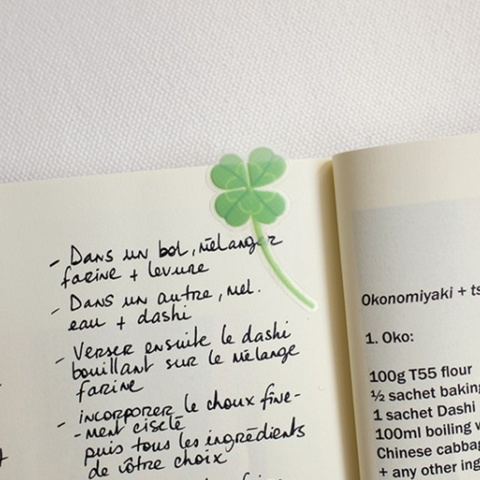 - Dans un bol, mélanger
farine + levure
- Dans un autre, mel.
eau + dashi
- Verser ensuite le dashi
bouillant sur le mélange
farine
- incorporer le choux fine-
-ment ciselé
puis tous les ingrédients
de vôtre choix
Okonomiyaki + ts
1. Oko:
100g T55 flour
½ sachet baking
1 sachet Dashi
100ml boiling w
Chinese cabbag
+ any other ing